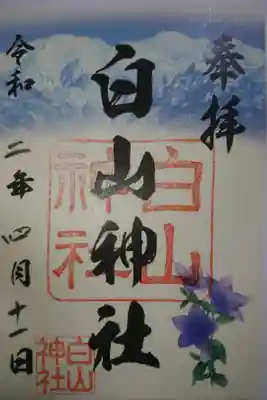 奉拝
白山神社
白山神社
令和二年四月十一日
白山神社